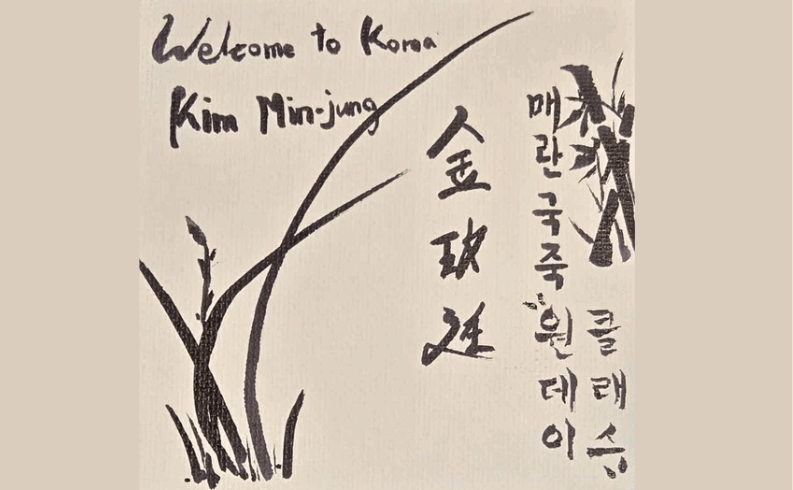 Welcome to Korea
Kim Min-jung
金玟廷
매란국죽
원데이
클래스